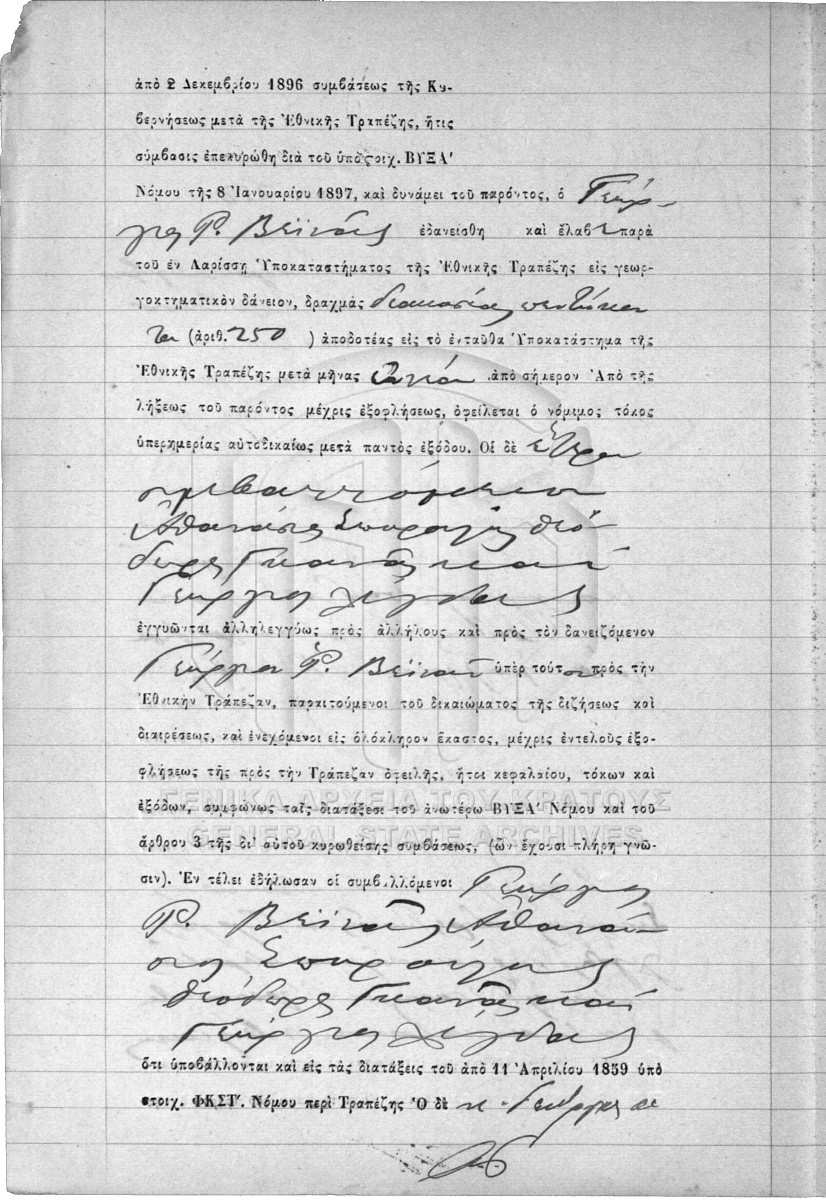 ἀπὸ 2 Δεκεμβρίου 1896 συμβάσεως τῆς Κυ-
βερνήσεως μετὰ τῆς Ἐθνικῆς Τραπέζης, ἥτις
σύμβασις ἐπεκυρώθη διὰ τοῦ ὑπὸ στοιχ. ΒΥΞΑ'
Νόμου τῆς 8 Ἰανουαρίου 1897, καὶ δυνάμει τοῦ παρόντος, ὁ Γεώρ-
γιος Ρ. Βεϊνᾶς ἐδανείσθη καὶ ἔλαβε παρὰ
τοῦ ἐν Λαρίσσῃ Ὑποκαταστήματος τῆς Ἐθνικῆς Τραπέζης εἰς γεωρ-
γοκτηματικὸν δάνειον, δραχμὰς διακοσίας πεντήκον
τα (ἀριθ. 250 ) ἀποδοτέας εἰς τὸ ἐνταῦθα Ὑποκατάστημα τῆς
Ἐθνικῆς Τραπέζης μετὰ μῆνας ἐννέα ἀπὸ σήμερον Ἀπὸ τῆς
λήξεως τοῦ παρόντος μέχρις ἐξοφλήσεως, ὀφείλεται ὁ νόμιμος τόκος
ὑπερημερίας αὐτοδικαίως μετὰ παντὸς ἐξόδου. Οἱ δὲ ἕτεροι
συμβαλλόμενοι
Ἀθανάσιος Θεό-
δωρος Γκανᾶς καὶ
Γεώργιος
ἐγγυῶνται ἀλληλεγγύως πρὸς ἀλλήλους καὶ πρὸς τὸν δανειζόμενον
Γεώργιον Ρ. Βεϊνᾶν ὑπὲρ τούτου πρὸς τὴν
Ἐθνικὴν Τράπεζαν, παραιτούμενοι τοῦ δικαιώματος τῆς διζήσεως καὶ
διαιρέσεως, καὶ ἐνεχόμενοι εἰς ὁλόκληρον ἕκαστος, μέχρις ἐντελοῦς ἐξο-
φλήσεως τῆς πρὸς τὴν Τράπεζαν ὀφειλῆς, ἤτοι κεφαλαίου, τόκων καὶ
ΓΕΝΙΚΑ ΑΡΧΕΙΑ ΤΟΥ ΚΡΑΤΟΥΣ
ἐξόδων, συμφώνως ταῖς διατάξεσι τοῦ ἀνωτέρω ΒΥΞΑ' Νόμου καὶ τοῦ
GENERAL STATE ARCHIVES
ἄρθρου 3 τῆς δι' αὐτοῦ κυρωθείσης συμβάσεως, (ὧν ἔχουσι πλήρη γνῶ-
σιν). Ἐν τέλει ἐδήλωσαν οἱ συμβαλλόμενοι Γεώργιος
Ρ. Βεϊνᾶς Ἀθανά-
σιος
Θεόδωρος Γκανᾶς καὶ
Γεώργιος
ὅτι ὑποβάλλονται καὶ εἰς τὰς διατάξεις τοῦ ἀπὸ 11 Ἀπριλίου 1859 ὑπὸ
στοιχ. ΦΚΣΤ'. Νόμου περὶ Τραπέζης Ὁ δὲ κ. Γεώργιος